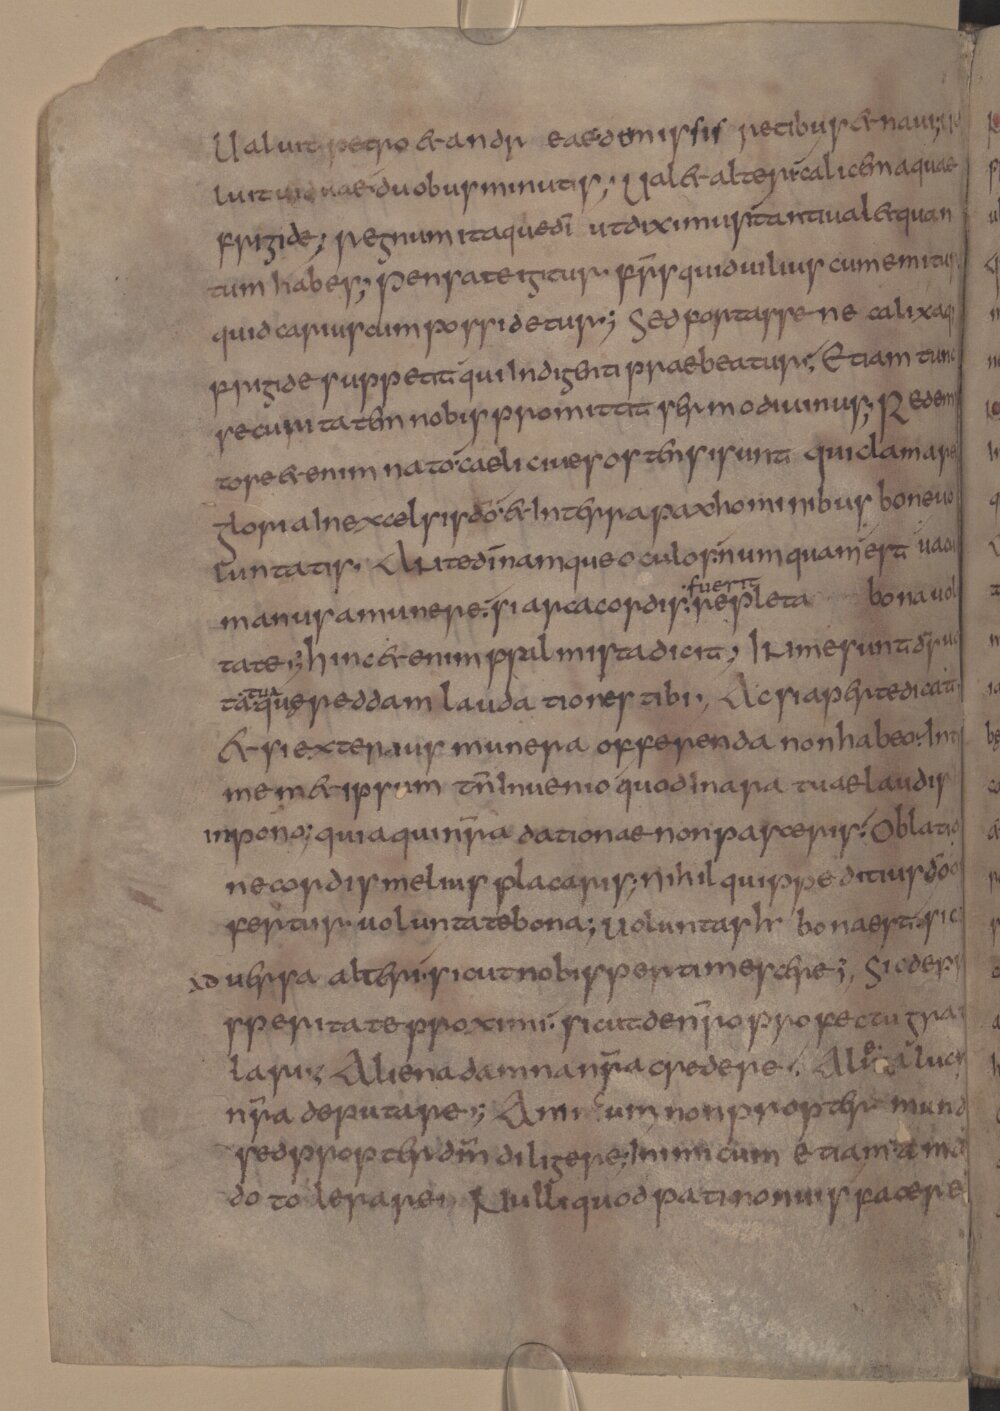 Ualuit petro & andr eae dimissis retibus & nauı; Ua
luit uiduae duobus minutis; Ual& alteri calicem aquae
frigide; regnum itaque dī ut diximus tantiual& quan
tum habes; Pensate igitur frīs quid uilius cum emitur
quid carius cum possidetur; Sed fortasse ne calix aq
frigide suppetit qui Indigenti praebeatur; Etiam tunc
securitatem nobis promittit sermo diuinus; Redem
tore &enim nato caeli ciues ostensi sunt qui clamare
gloria In excelsis dō & In terra pax hominibus bone uo
luntatis. Ante dī namque oculos numquam est uacu
manus a munere. si arca cordis fuerit repleta bona uol
tate; hinc &enim psalmista dicit; In me sunt ds uo
ta tua que reddam laudationes tibi; Ac si aperte dicat
& si exterius munera offerenda non habeo. Int
mem& ipsum tn̄ Inuenio quod In ara tuae laudis
inpono; quia qui nr̄a dationae non pasceris. Oblatio
ne cordis melius placaris; nihil quippe ditius dō o
fertur uoluntate bona; Uoluntas h bona est. sic
aduersa alteri sicut nobis pertimescere; Sic de pr
speritate proximi. sicut de nr̄o profectu gra
lari; Aliena damna nr̄a credere. Aliena lucr
nr̄a deputare; Amicum non propter mund
sed propter dm̄ diligere; Inimicum etiam ama
do tolerare; Nulli quod pati non uis facere